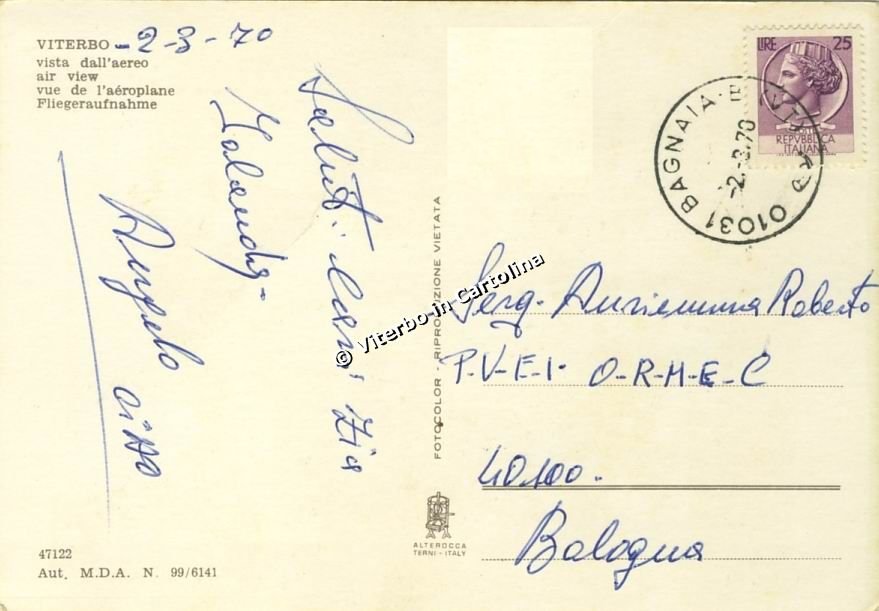 VITERBO -2-3-70
vista dall'aereo
air view
vue de l'aéroplane
Fliegeraufnahme
Saluti Cari Zia
Jolanda-
Angelo
47122
Aut. M.D.A. N. 99/6141
FOTOCOLOR - RIPRODUZIONE VIETATA
ALTEROCCA
TERNI - ITALY
© Viterbo in Cartolina
LIRE 25
REPVBBLICA
ITALIANA
01031 BAGNAIA
-2.-3.70
Serg. Auriemma Roberto
P-V-E-I- O-R-M-E-C
40100-
Bologna